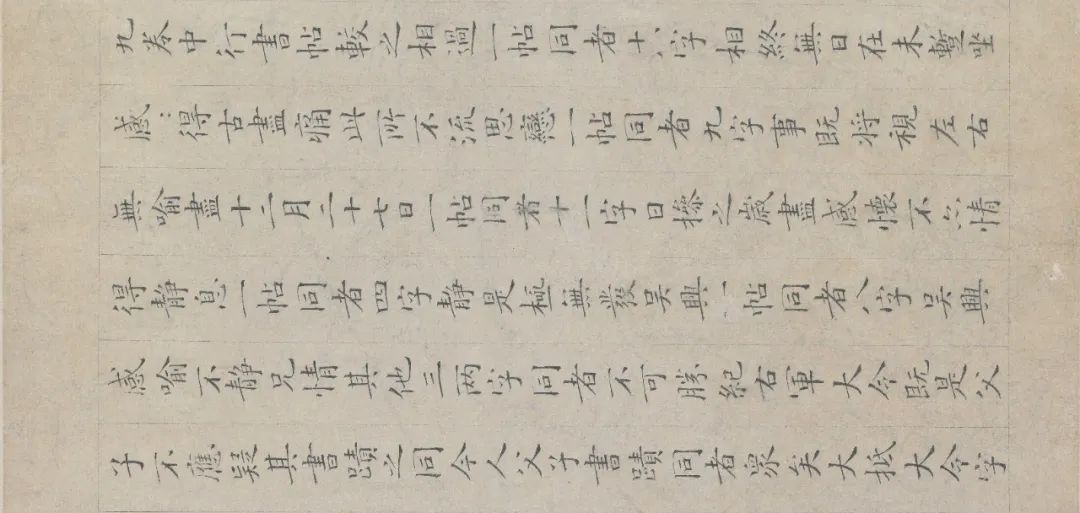 九卷中行書帖較之相過一帖同者十八字相終無日在未蹔坐
感〻得古盡痛此所不流思戀一帖同者九字事既將視左右
無喻盡十二月二十七日一帖同者十一字日摻之歲盡感懷不忘情
得靜息一帖同者四字靜是極無發吳興一帖同者八字吳興
感喻不靜兄情其他三兩字同者不可勝紀右軍大令既是父
子不應疑其書蹟之同今人父子書蹟同者衆矣大抵大令字